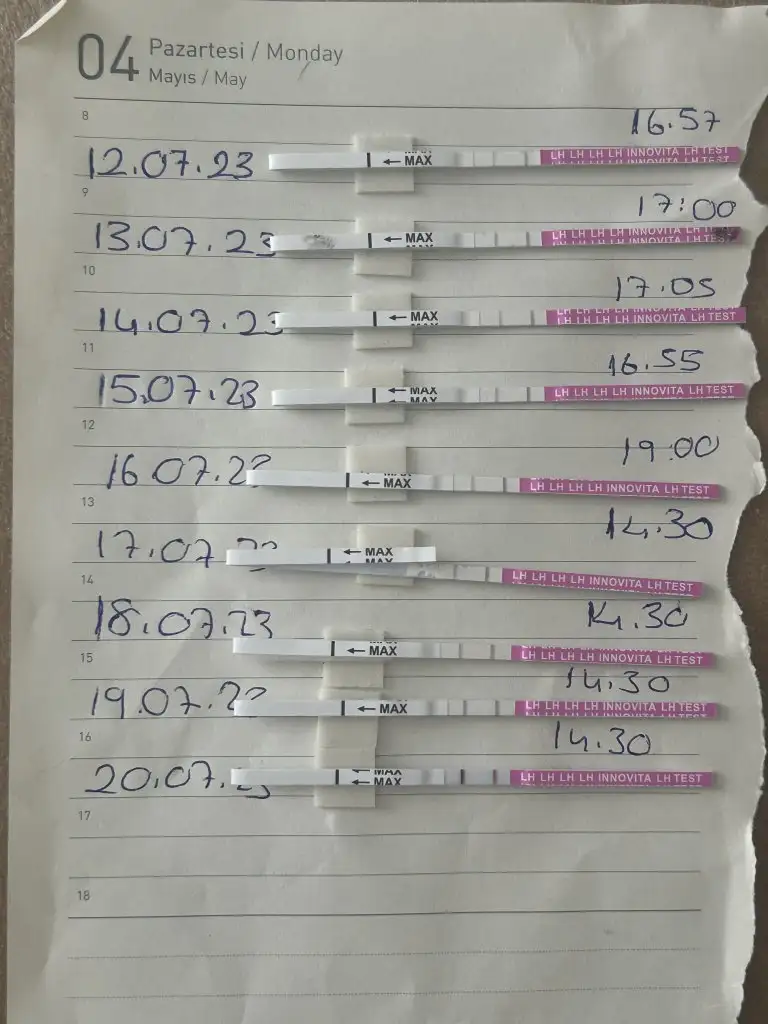 04 Pazartesi / Monday
Mayıs / May
8
16.57
12.07.23
← MAX
LH LH LH LH INNOVITA LH TEST
9
17:00
13.07.23
← MAX
LH LH LH LH INNOVITA LH TEST
10
17.05
14.07.23
← MAX
LH LH LH LH INNOVITA LH TEST
11
16.55
15.07.23
← MAX
LH LH LH LH INNOVITA LH TEST
12
19.00
16.07.23
← MAX
13
LH LH LH LH INNOVITA LH TEST
14.30
17.07
← MAX
14
LH LH LH LH INNOVITA LH TEST
18.07.23
14.30
15
← MAX
LH LH LH LH INNOVITA LH TEST
14.30
19.07.23
← MAX
LH LH LH LH INNOVITA LH TEST
16
14.30
20.07.23
← MAX
LH LH LH LH INNOVITA LH TEST
17
18